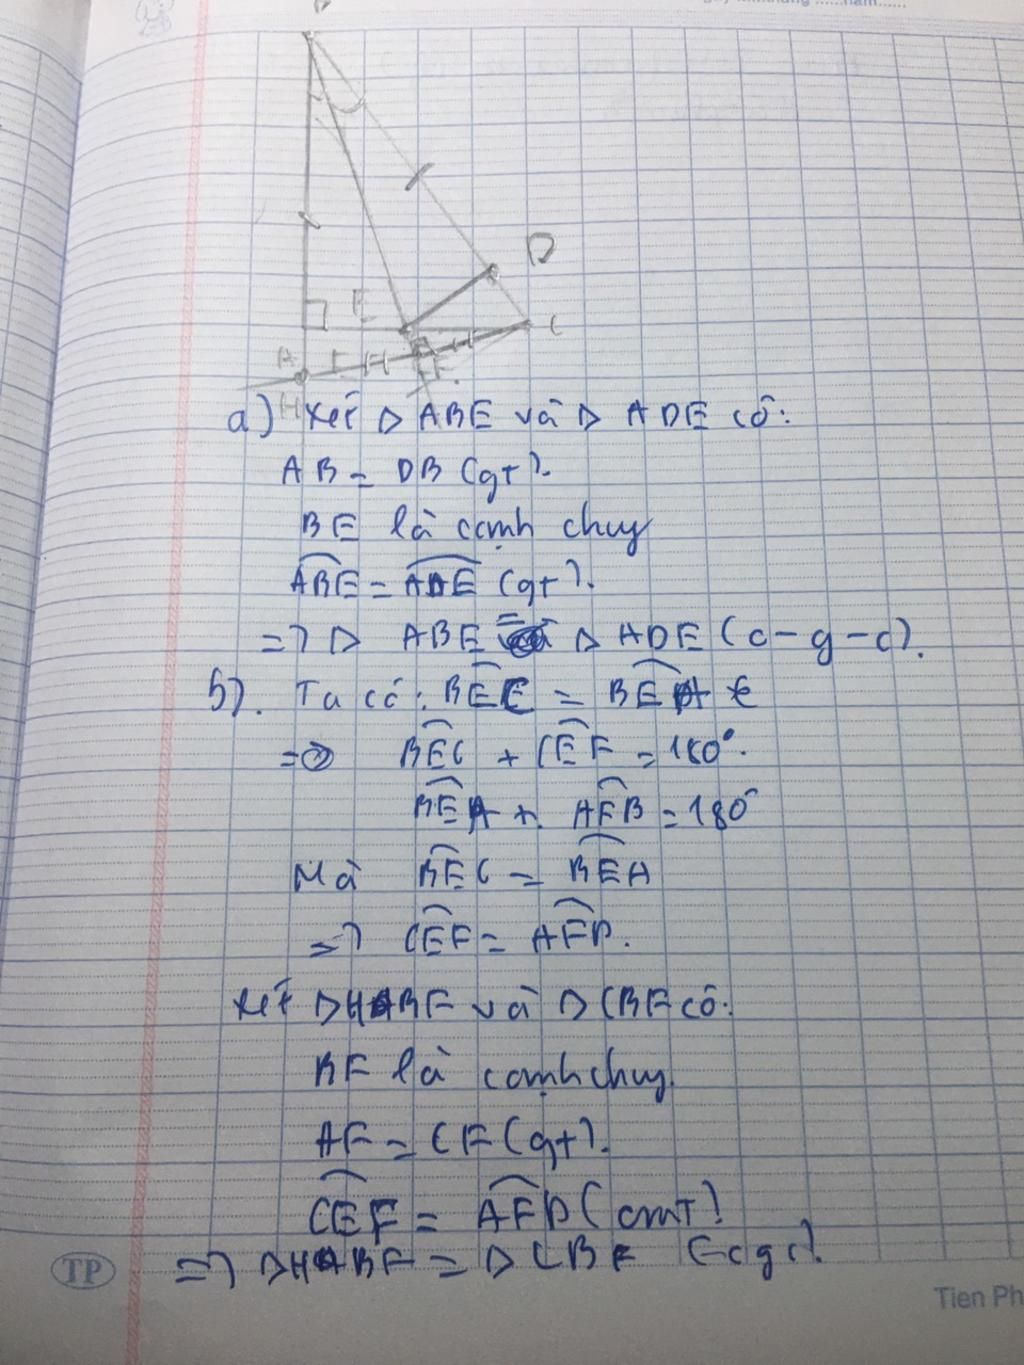 D
E
C
A
H
a) Xét Δ ABE và Δ ADE có:
AB = DB (gt).
BE là cạnh chuy
ABE = ADE (gt).
=> Δ ABE = Δ ADE (c-g-c).
b). Ta có: BEC = BEA
=> BEC + CEF = 180°.
BEA + AFB = 180°
Mà BEC = BEA
=> CEF = AFB.
Xét ΔHBF và ΔCBF có:
BF là cạnh chuy.
AF = CF (gt).
CEF = AFB (cmt)
=> ΔHBF = ΔCBF (cgc).
TP
Tien Ph